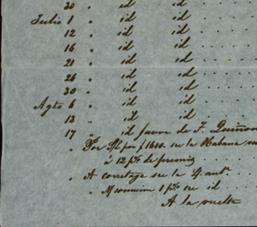 30 " id id
Julio 1 " id id
12 " id id
16 " id id
21 " id id
26 " id id
30 " id id
Agto 6 " id id
13 " id id
17 " id favor de J.
" Por en la Habana
á 12 p% de premio
" A corretage en la
" M comision 1 p% en id
A la vuelta